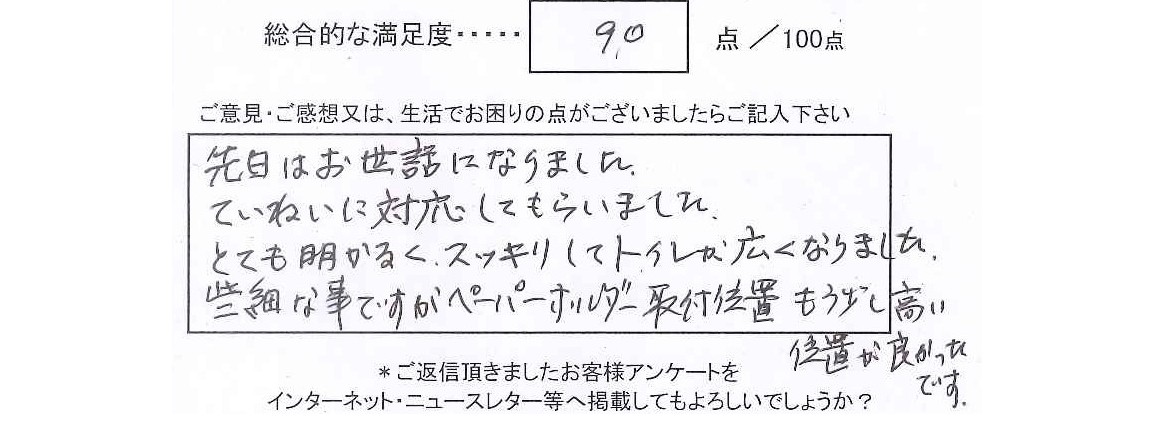 総合的な満足度・・・・・ 90 点 ／100点
ご意見・ご感想又は、生活でお困りの点がございましたらご記入下さい
先日はお世話になりました.
ていねいに対応してもらいました.
とても明かるく、スッキリしてトイレが広くなりました.
些細な事ですがペーパーホルダー取付位置もう少し高い
位置が良かった
です.
＊ご返信頂きましたお客様アンケートを
インターネット・ニュースレター等へ掲載してもよろしいでしょうか？